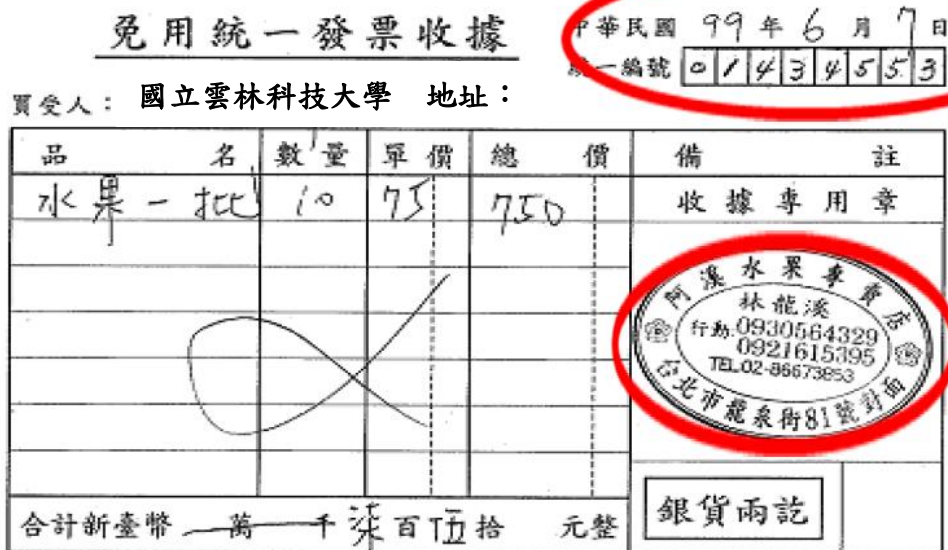 免用統一發票收據
中華民國 99 年 6 月 7 日
統一編號 01434553
買受人: 國立雲林科技大學 地址:
品名 數量 單價 總價 備註
水果一批 10 75 750
收據專用章
阿溪水果專賣店
林龍溪
行動:0930564329
0921615395
TEL.02-86673853
台北市龍泉街81號對面
銀貨兩訖
合計新臺幣 萬 千 柒 百 伍 拾 元整